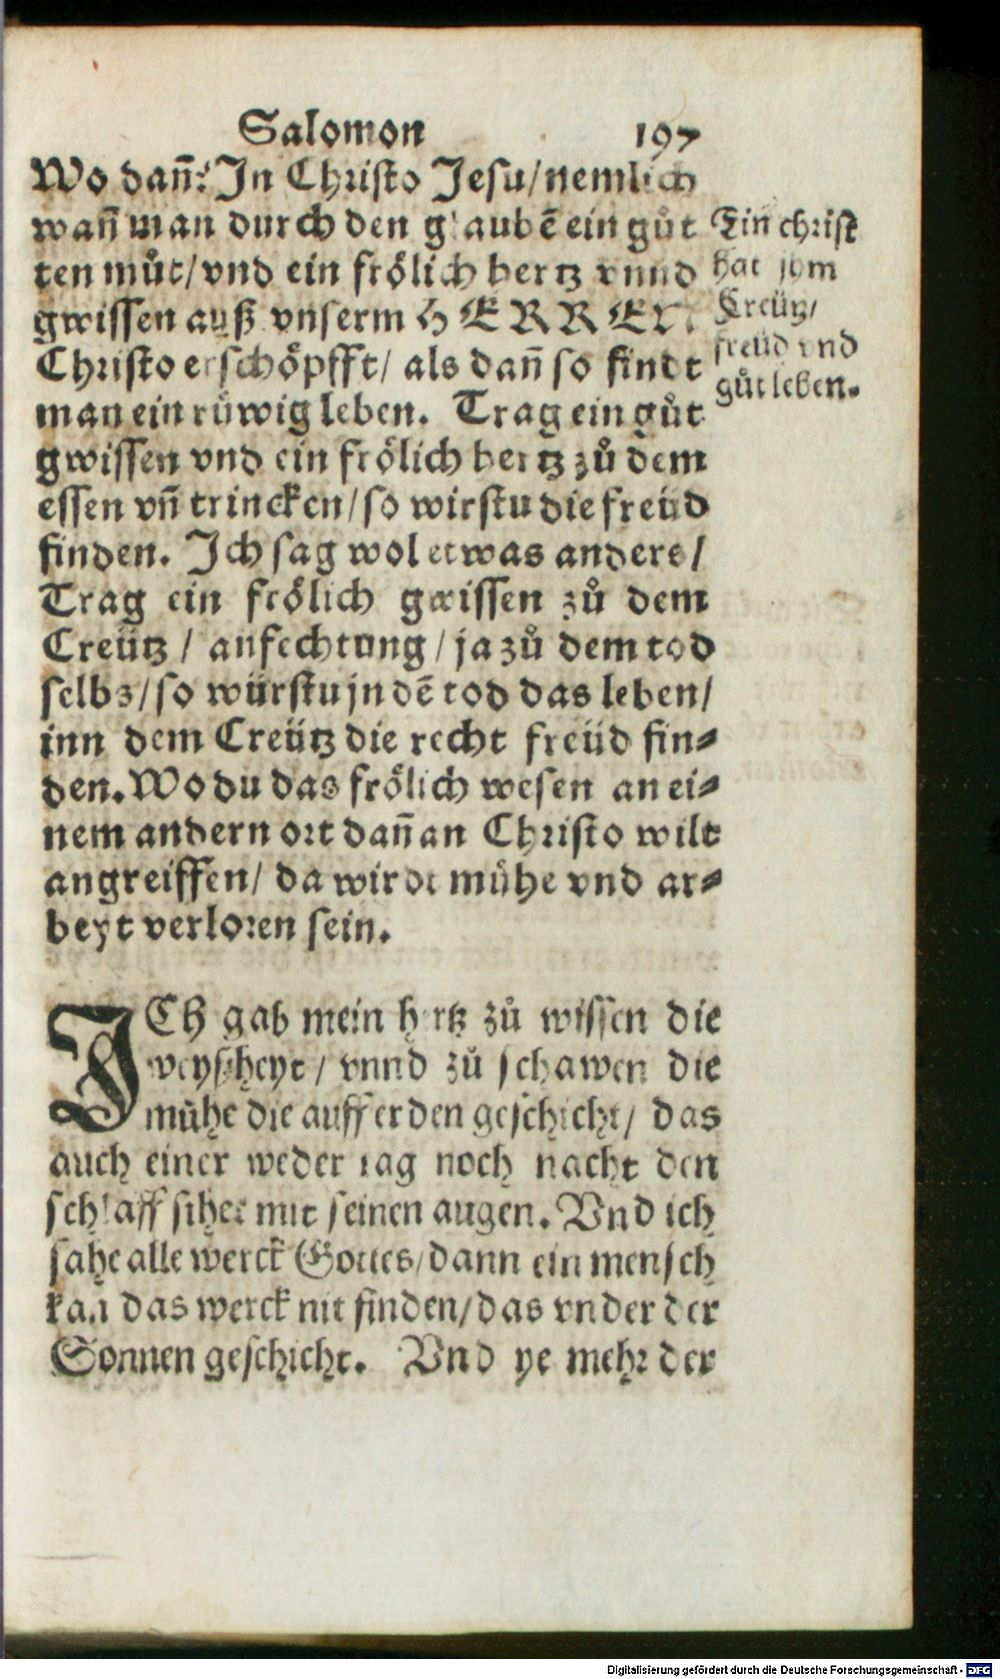 Salomon 197
Wo dañ? In Christo Jesu/nemlich
wañ man durch den glaubẽ ein gůt
ten můt/vnd ein frölich hertz vnnd
gwissen auß vnserm HERREN
Christo erschöpfft/ als dañ so findt
man ein rüwig leben. Trag ein gůt
gwissen vnd ein frölich hertz zů dem
essen vñ trincken/so wirstu die freüd
finden. Ich sag wol etwas anders/
Trag ein frölich gwissen zů dem
Creütz/ anfechtung/ja zů dem tod
selbs/so würstu jn dẽ tod das leben/
inn dem Creütz die recht freüd fin⸗
den. Wo du das frölich wesen an ei⸗
nem andern ort dañ an Christo wilt
angreiffen/ da wirdt mühe vnd ar⸗
beyt verloren sein.
Ein christ
hat jm
Creütz/
freüd vnd
gůt leben.
ICH gab mein hertz zů wissen die
weyßheyt/ vnnd zů schawen die
mühe die auff erden geschicht/ das
auch einer weder tag noch nacht den
schlaff sihet mit seinen augen. Vnd ich
sahe alle werck Gottes/dann ein mensch
kan das werck nit finden/das vnder der
Sonnen geschicht. Vnd ye mehr der
Digitalisierung gefördert durch die Deutsche Forschungsgemeinschaft - DFG